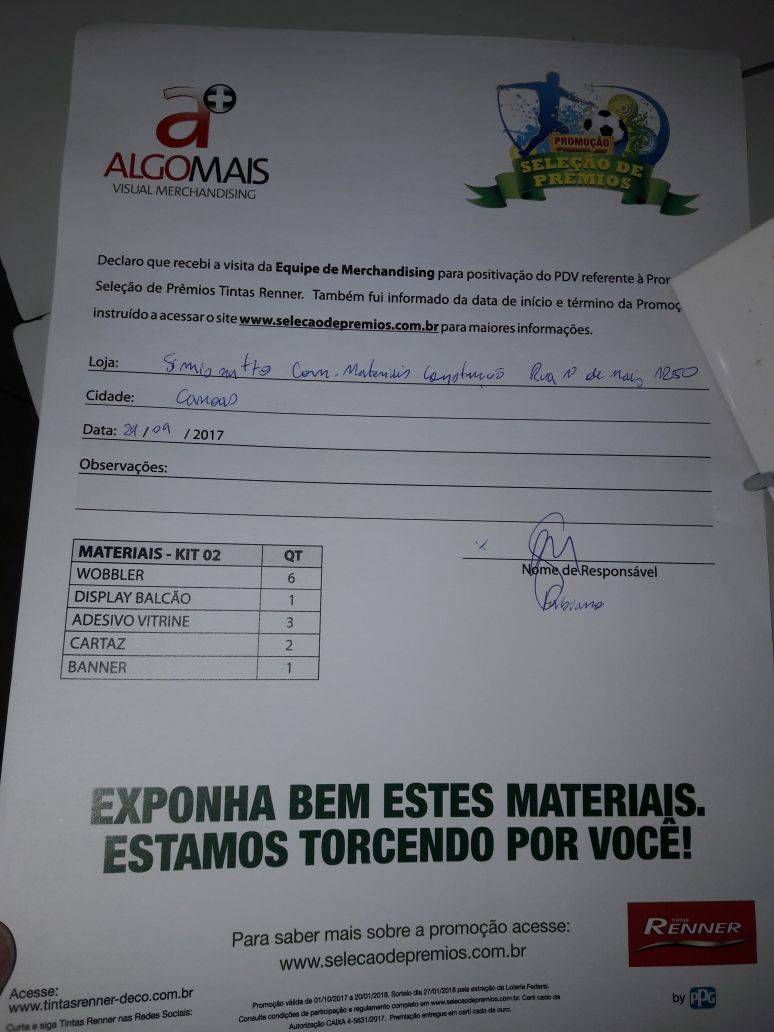 a+
ALGOMAIS
VISUAL MERCHANDISING
PROMOÇÃO
SELEÇÃO DE
PRÊMIOS
Declaro que recebi a visita da Equipe de Merchandising para positivação do PDV referente à Pro
Seleção de Prêmios Tintas Renner. Também fui informado da data de início e término da Promoç
instruído a acessar o site www.selecaodepremios.com.br para maiores informações.
Loja: Com. Materiais Construção Rua 1º de Maio 1250
Cidade: Canoas
Data: / 09 / 2017
Observações:
MATERIAIS - KIT 02 QT
WOBBLER 6
DISPLAY BALCÃO 1
ADESIVO VITRINE 3
CARTAZ 2
BANNER 1
x
Nome de Responsável
EXPONHA BEM ESTES MATERIAIS.
ESTAMOS TORCENDO POR VOCÊ!
Para saber mais sobre a promoção acesse:
www.selecaodepremios.com.br
TINTAS
RENNER
Acesse:
www.tintasrenner-deco.com.br
Curta e siga Tintas Renner nas Redes Sociais:
Promoção válida de 01/10/2017 a 20/01/2018. Sorteio dia 27/01/2018 pela extração da Loteria Federal.
Consulte condições de participação e regulamento completo em www.selecaodepremios.com.br. Certificado de
Autorização CAIXA 4-5631/2017. Premiação entregue em certificado de ouro.
by PPG